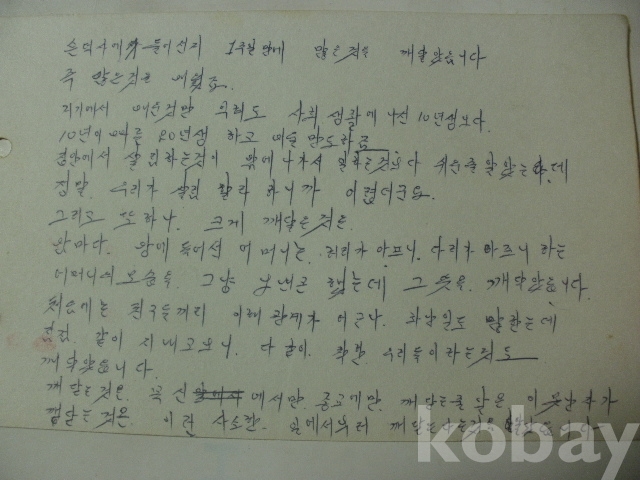 들어선지 1주일만에 많은것을 깨달았읍니다
즉 많은것을 배웠죠.
여기에서 배운것만 우려도 사회 생활에 나선 10년생보다.
10년이 아닌 20년생 하고 배울 만도하금
집안에서 살림하는것이 밖에 나가서 일하는것보다 쉬운줄알았는데
정말. 우리가 살림 할라 하니까 어렵더군요.
그리고 또하나. 크게 깨달은 것은.
한마디. 왕에 들어선 어머니는. 허리가 아프니. 다리가 아프니 하는
어머니의 모습을. 그냥 했는데 그 뜻을. 깨닥았읍니다.
처음에는 친구들끼리 이해 관계가 하찮일도 말한는데
같이 지내고보니. 다 같이. 착한 우리들이라는것도
깨닥았읍니다.
깨닫는것은. 꼭 신 에서만. 종교에만. 깨닫는줄 알은 이 못난 자가
깨닫는 것은. 이런 사소한. 깨닫는다는것을
kobay